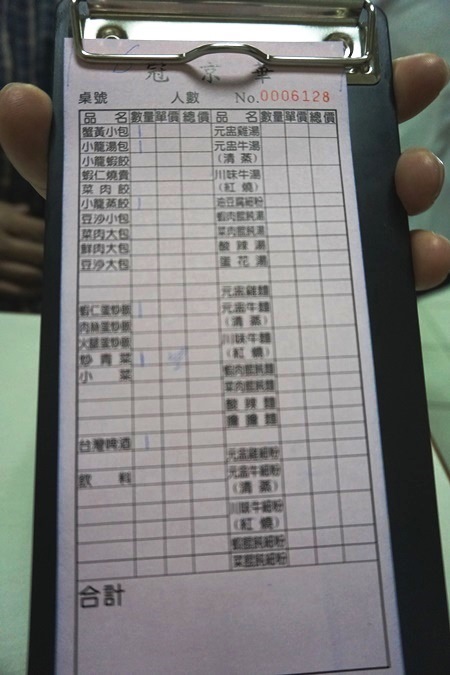 冠京華
桌號 人數 No.0006128
品名 數量 單價 總價 品名 數量 單價 總價
蟹黃小包 元盅雞湯
小籠湯包 元盅牛湯
小籠蝦餃 (清蒸)
蝦仁燒賣 川味牛湯
菜肉餃 (紅燒)
小籠蒸餃 油豆腐細粉
豆沙小包 蝦肉餛飩湯
菜肉大包 菜肉餛飩湯
鮮肉大包 酸辣湯
豆沙大包 蛋花湯
元盅雞麵
蝦仁蛋炒飯 元盅牛麵
肉絲蛋炒飯 (清蒸)
火腿蛋炒飯 川味牛麵
炒青菜 (紅燒)
小菜 蝦肉餛飩麵
菜肉餛飩麵
酸辣麵
擔擔麵
台灣啤酒
元盅雞細粉
飲料 元盅牛細粉
(清蒸)
川味牛細粉
(紅燒)
蝦餛飩細粉
菜餛飩細粉
合計